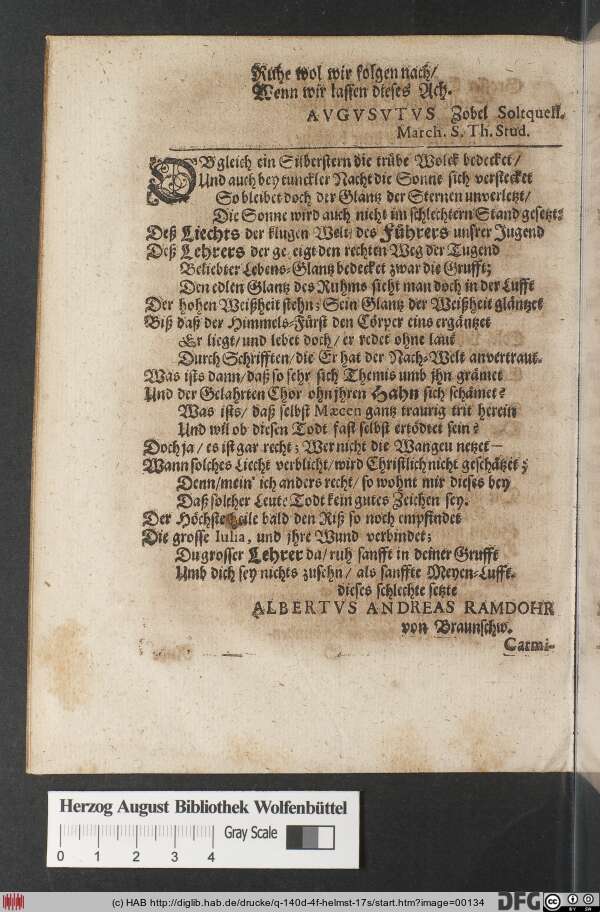 Ruhe wol wir folgen nach/
Wenn wir lassen dieses Ach.
AVGVSVTVS Zobel Soltquell.
March. S. Th. Stud.
OBgleich ein Silberstern die trübe Wolck bedecket/
Und auch bey tunckler Nacht die Sonne sich verstecket
So bleibet doch der Glantz der Sternen unverletzt/
Die Sonne wird auch nicht im schlechtern Stand gesetzt:
Deß Liechts der klugen Welt/ des Führers unsrer Jugend
Deß Lehrers der gezeigt den rechten Weg der Tugend
Beliebter Lebens-Glantz bedecket zwar die Grufft;
Den edlen Glantz des Ruhms sieht man doch in der Lufft
Der hohen Weißheit stehn; Sein Glantz der Weißheit gläntzet
Biß daß der Himmels-Fürst den Cörper eins ergäntzet
Er liegt/ und lebet doch/ er redet ohne laut
Durch Schrifften/ die Er hat der Nach-Welt anvertraut.
Was ists dann/ daß so sehr sich Themis umb jhn grämet
Und der Gelahrten Chor ohn jhren Hahn sich schämet?
Was ists/ daß selbst Mæcen gantz traurig trit herein
Und wil ob diesen Todt fast selbst ertödtet sein?
Doch ja/ es ist gar recht; Wer nicht die Wangen netzet—
Wann solches Liecht verblicht/ wird Christlich nicht geschätzet;
Denn/ mein' ich anders recht/ so wohnt mir dieses bey
Daß solcher Leute Todt kein gutes Zeichen sey.
Der Höchste heile bald den Riß so noch empfindet
Die grosse Iulia, und jhre Wund verbindet;
Du grosser Lehrer da/ ruh sanfft in deiner Grufft
Umb dich sey nichts zusehn/ als sanffte Meyen-Lufft.
dieses schlechte setzte
ALBERTVS ANDREAS RAMDOHR
von Braunschw.
Carmi-
Herzog August Bibliothek Wolfenbüttel
Gray Scale
0 1 2 3 4
(c) HAB http://diglib.hab.de/drucke/q-140d-4f-helmst-17s/start.htm?image=00134
DFG
CC BY SA